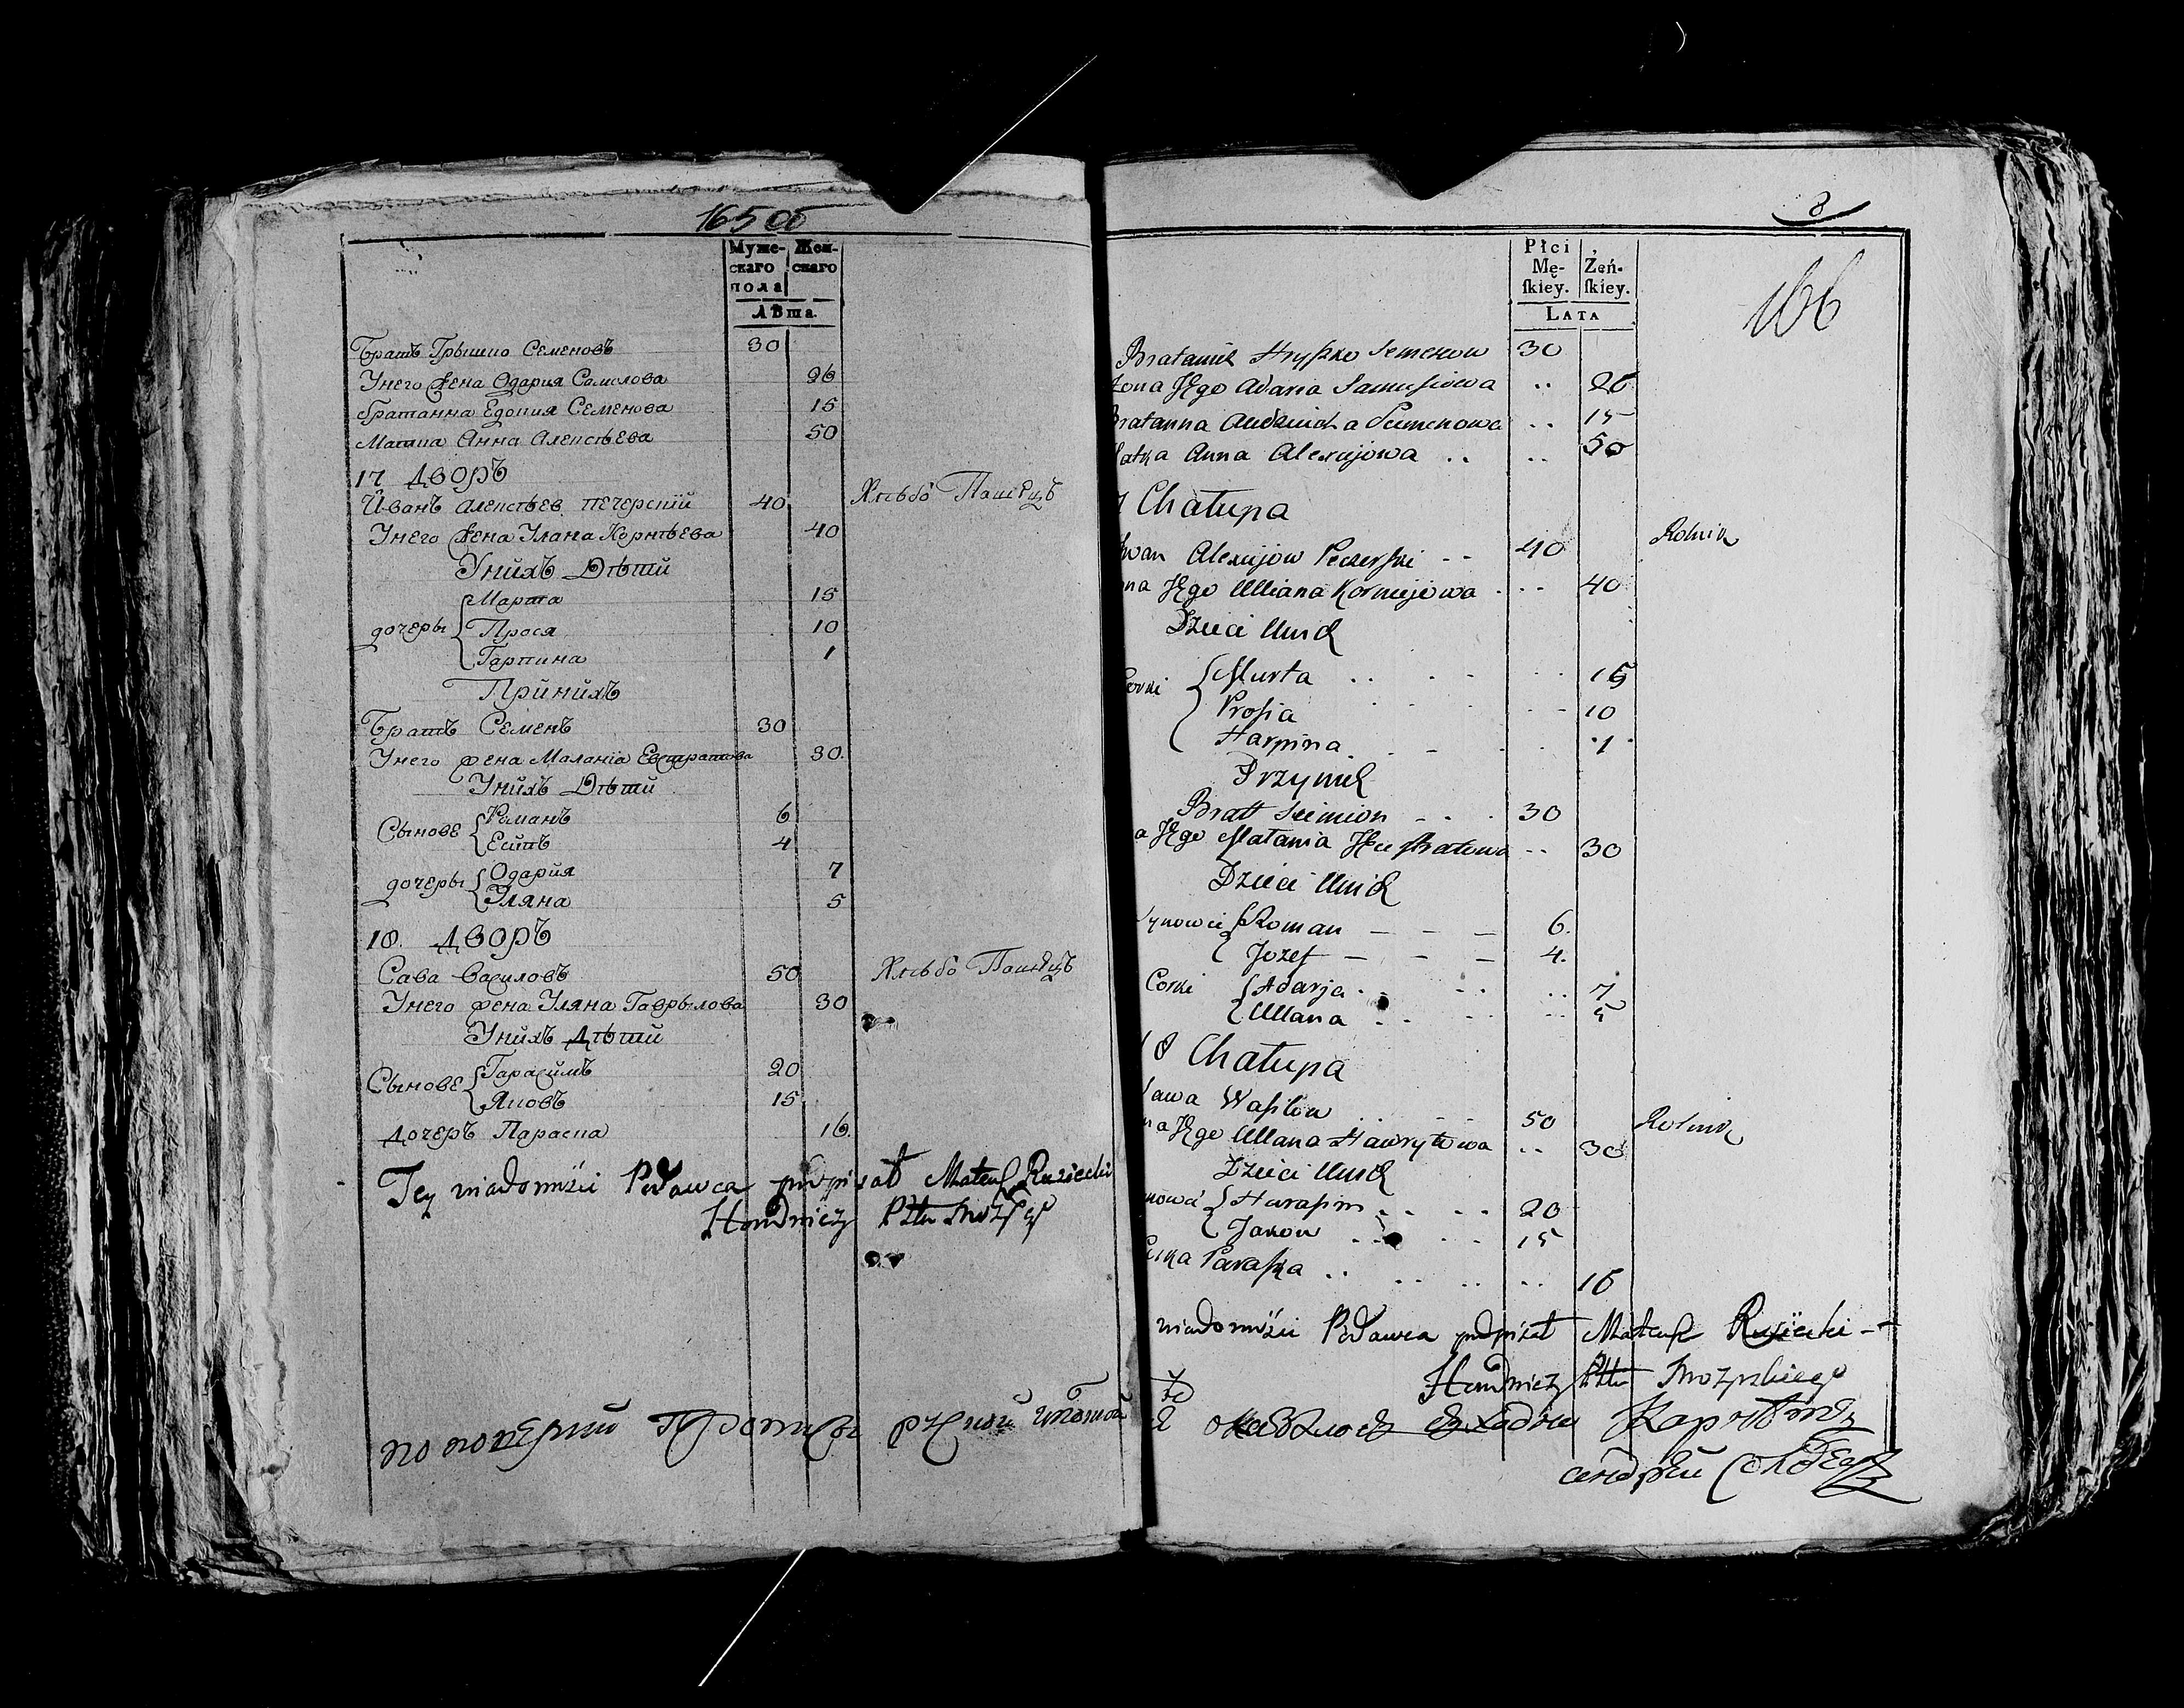 165 об
Муже- Жен-
скаго скаго
пола
Лѣта.
Братъ Грышко Семеновъ 30
Унего жена Одария Самолова 26
братанна Едокия Семенова 15
Матка Анна Алексѣева 50
17 Дворъ
Иванъ Алексѣев Печерский 40 Хлѣбо Пашецъ
Унего жена Улана Корнѣева 40
Унихъ Дѣти
дочеры { Марта 15
Прося 10
Гарпина 1
Принихъ
Братъ Семенъ 30
Унего жена Маланїа Евстратова 30.
Унихъ Дѣти
Сынове { Романъ 6
Есипъ 4
дочеры { Одария 7
Уляна 5
18. Дворъ
Сава Василовъ 50 Хлѣбо Пашецъ
Унего жена Уляна Гаврылова 30
Унихъ Дѣти
Сынове { Гарасимъ 20
Яковъ 15
Дочеръ Параска 16.
Tey wiadomości Podawca podpisał Mateusz Rusiecki
8
166
Płci
Mę- Żeń-
ſkiey. ſkiey.
Lata
Bratanek Hryszko Semenow 30
Żona Jego Adaria Samusiowa .. 26
Bratanna Semenowa .. 15
Matka Anna Alexiejowa .. .. 50
Chałupa
Iwan Alexijow Peczerski -- 40 Rolnik
Jego Ulliana Korniejowa 40
Dzieci Unich
Corki { Marta 15
Prosia 10
Harpina 1
Przynich
Bratt Siemion 30
Jego Małania .. 30
Dzieci Unich
Synowie { Roman — — — 6.
Jozef — — — 4.
Corki { Adarja 7
Ullana 5
18 Chałupa
Sawa Wasilow 50 Rolnik
Jego Ullana Hawryłowa .. 30
Dzieci Unich
{ Harasim 20
Jakow 15
Paraska 16
wiadomości Podawca podpisał Mateusz Rusiecki